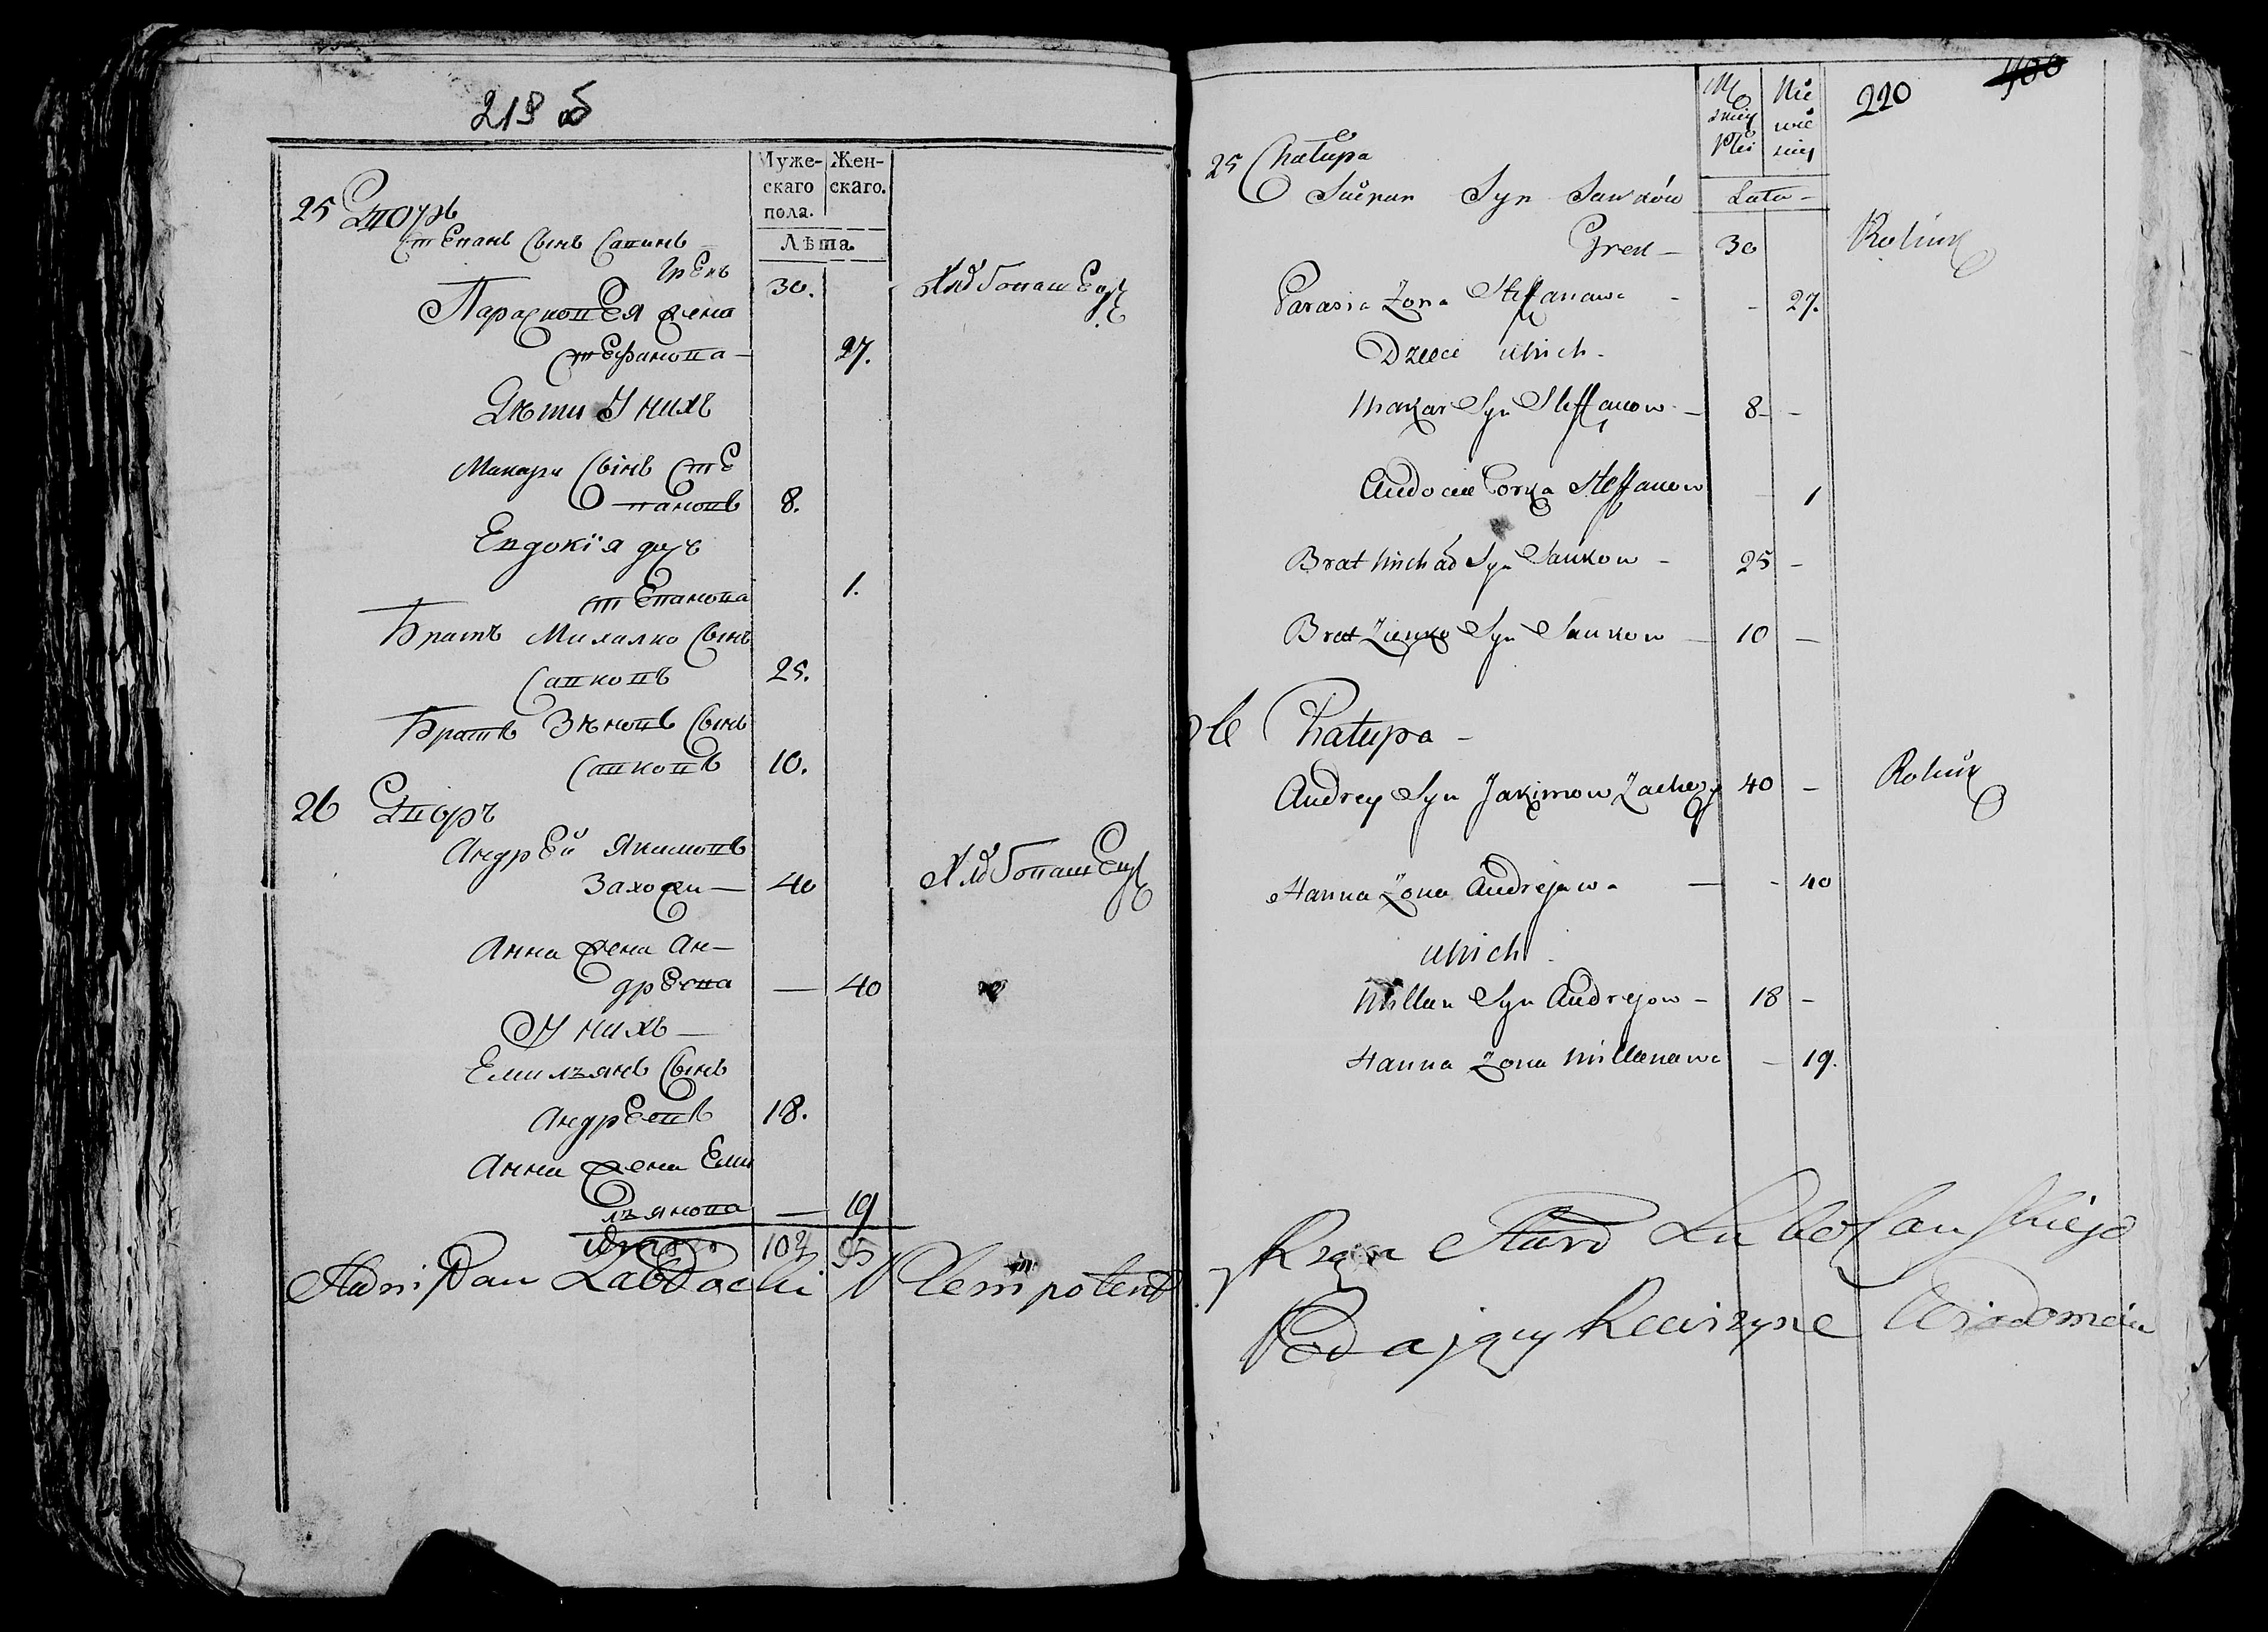 219 б
Муже-
скаго
пола.
Жен-
скаго.
Лѣта.
25 Дворъ
Степанъ Сынъ Савинъ
Грекъ 30. Хлѣбопашец
Парасковея жена
Стефанова — 27.
Дѣти У нихъ
Макаръ Сынъ Сте
пановъ 8.
Евдокія дочь
Степанова 1.
Братъ Михалко Сынъ
Савковъ 25.
Братъ Зѣновъ Сынъ
Савковъ 10.
26 Дворъ
Андрей Якимовъ
Захожи — 40 Хлѣбопашец
Анна жена Ан-
дреева — 40
У нихъ —
Емилъянъ Сынъ
Андреевъ 18.
Анна жена Еми
лъянова — 19
Adm Pan Plempotent
220
400
Mę
skiey
Płci
Nie
wie
sciey
Lata -
25 Chałupa
Sciepan Syn Sawków
Grek - 30 Rolnik
Parasia Żona Steffanowa - - 27.
Dzieci unich -
Makar Syn Steffanow - 8 - -
Audocia Corka Steffanow - 1
Brat Michał Syn Saukow - 25 -
Brat Zienko Syn Saukow — 10 —
26 Chałupa -
Andrey Syn Jakimow Zachozy 40 - Rolnik
Hanna Żona Andrejowa — - 40
unich -
Millan Syn Andrejow - 18 -
Hanna Żona Millanowa - 19.
Podaiący Rewizyne